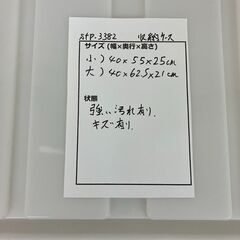 stp.3382 収納ケース
サイズ (幅×奥行×高さ)
小) 40×55×25cm
大) 40×62.5×21cm
状態
強い汚れ有り、
キズ有り、